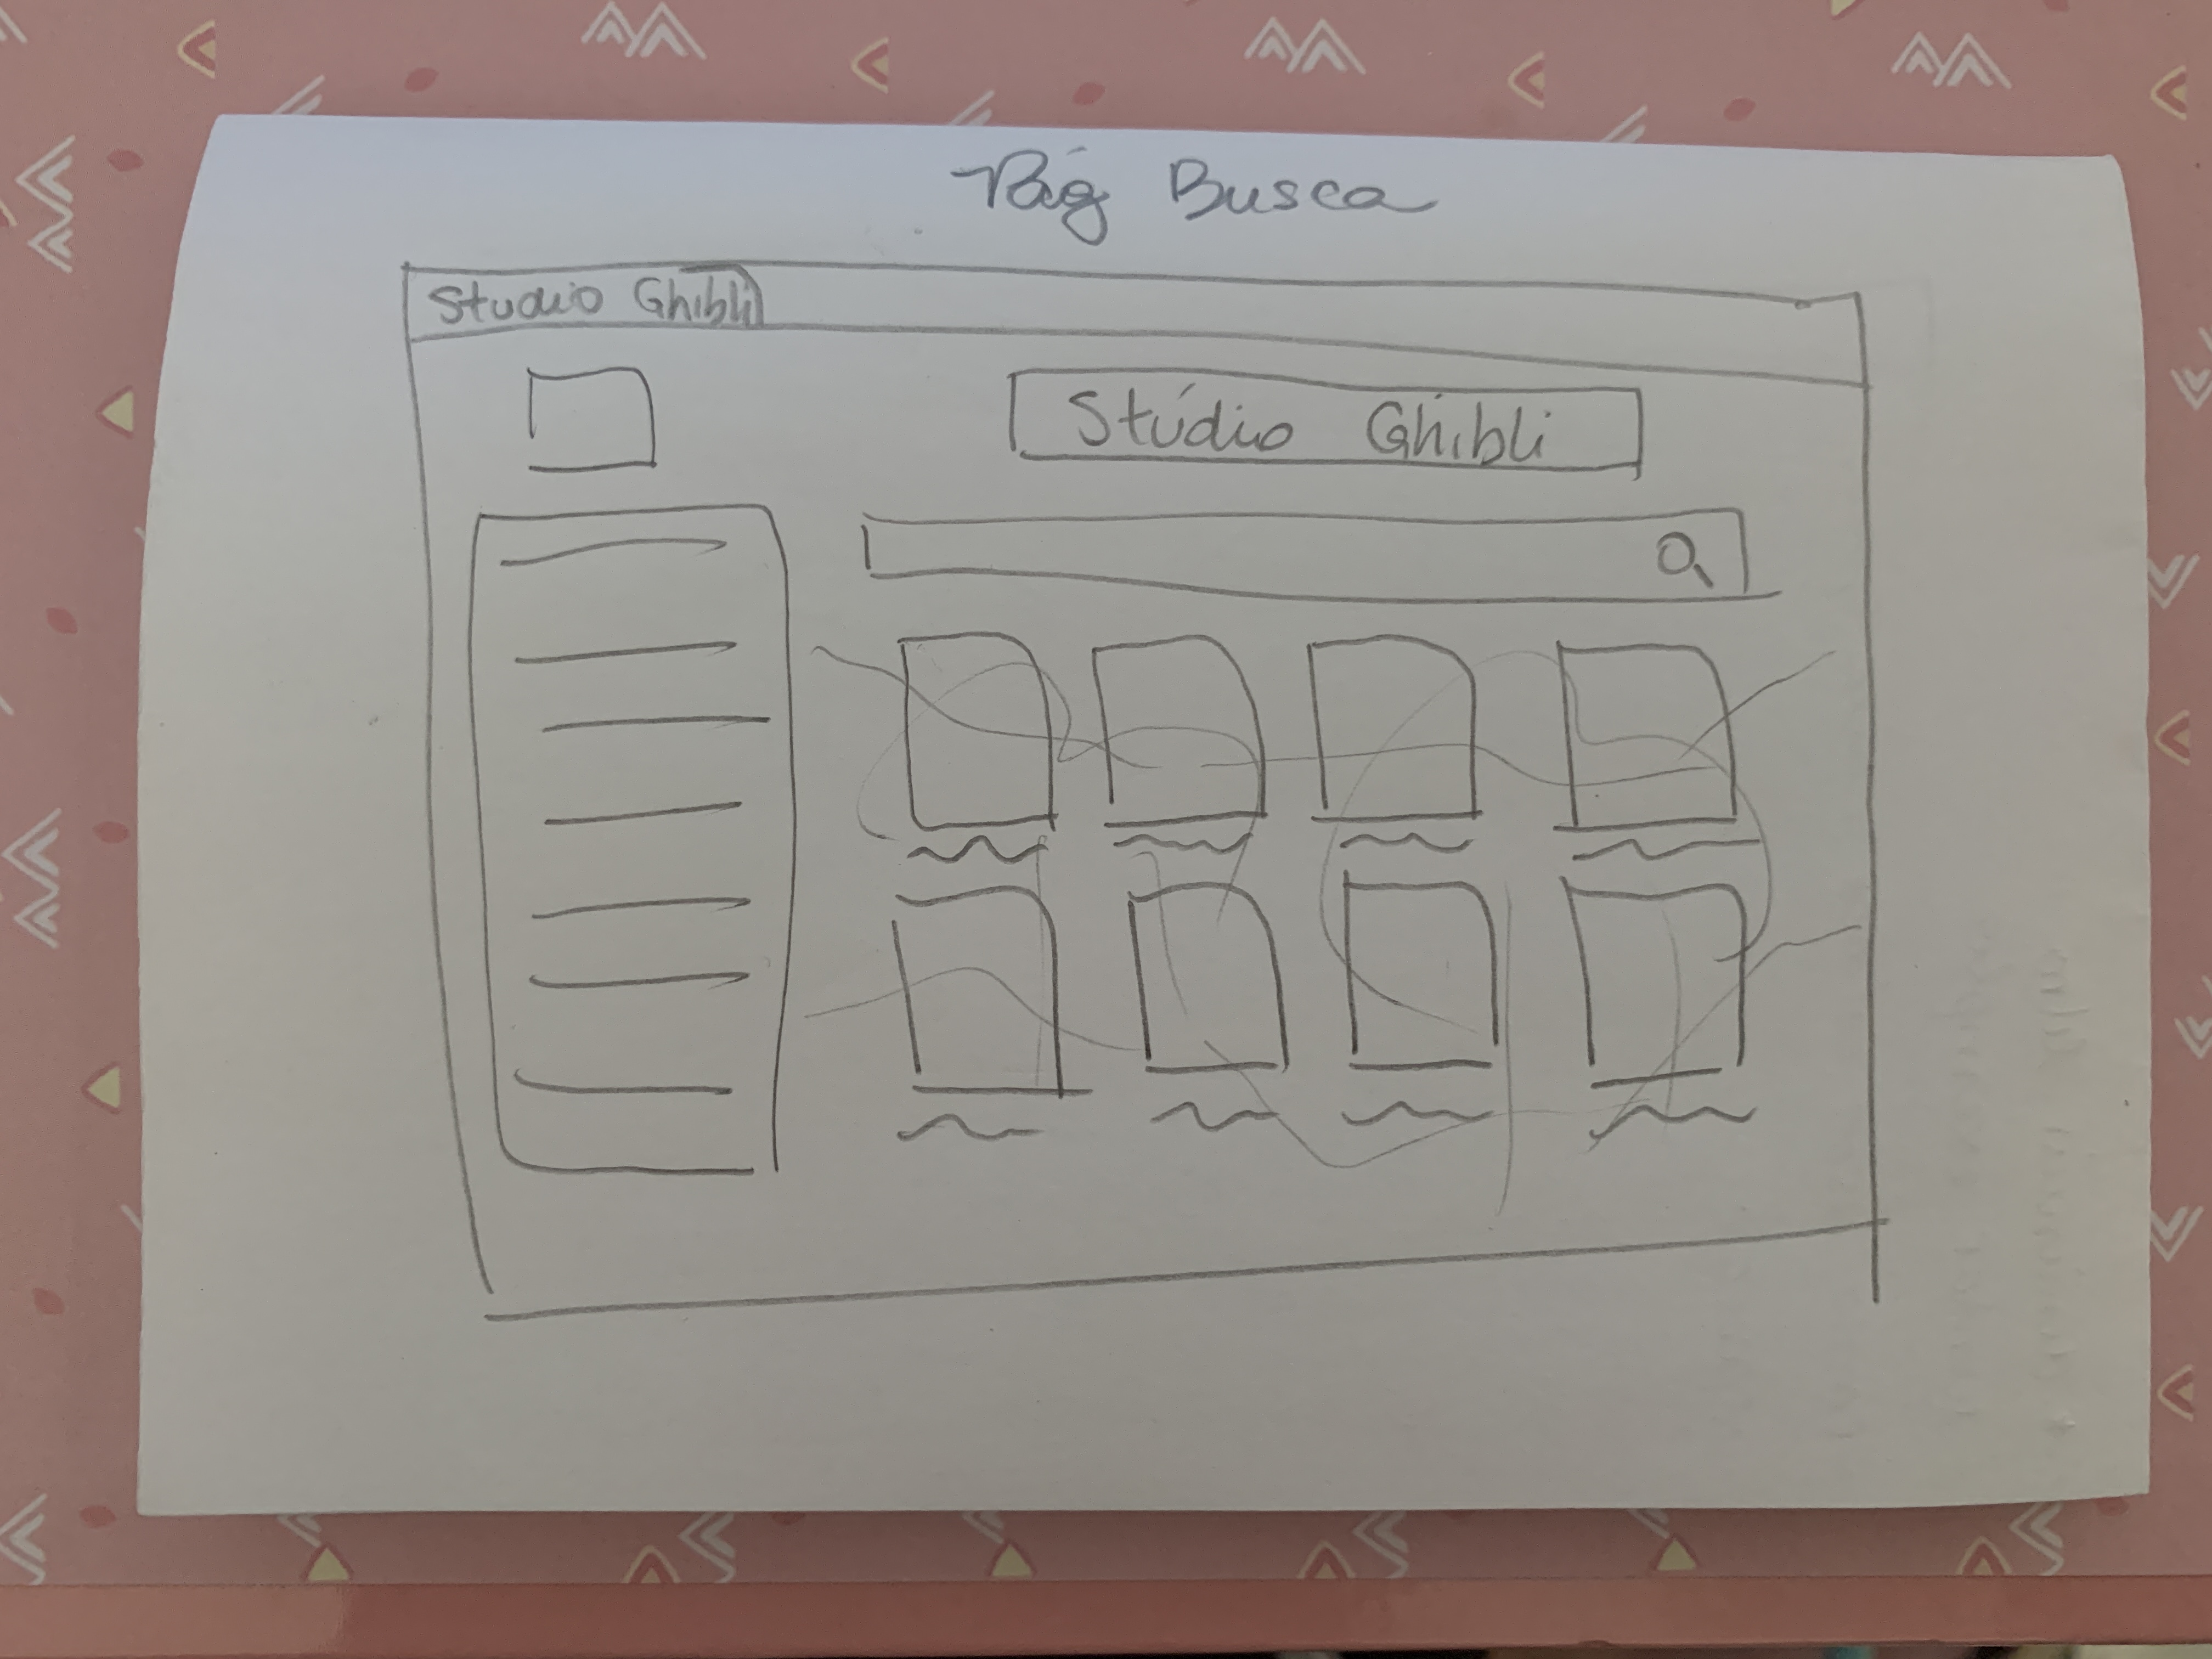 Pág Busca
Studio Ghibli
Stúdio Ghibli